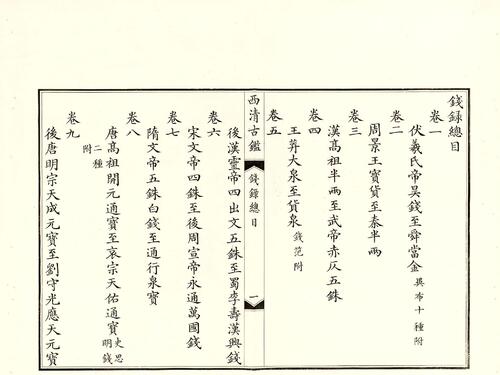 錢録總目
卷一
伏羲氏帝昊錢至舜當金異布十種附
卷二
周景王寶貨至秦半兩
卷三
漢高祖半兩至武帝赤仄五銖
卷四
王莽大泉至貨泉錢范附
卷五
西清古鑑
錢録總目
一
後漢靈帝四出文五銖至蜀李壽漢興錢
卷六
宋文帝四銖至後周宣帝永通萬國錢
卷七
隋文帝五銖白錢至通行泉寶
卷八
唐高祖開元通寶至哀宗天佑通寶史思明錢二種附
卷九
後唐明宗天成元寶至劉守光應天元寶